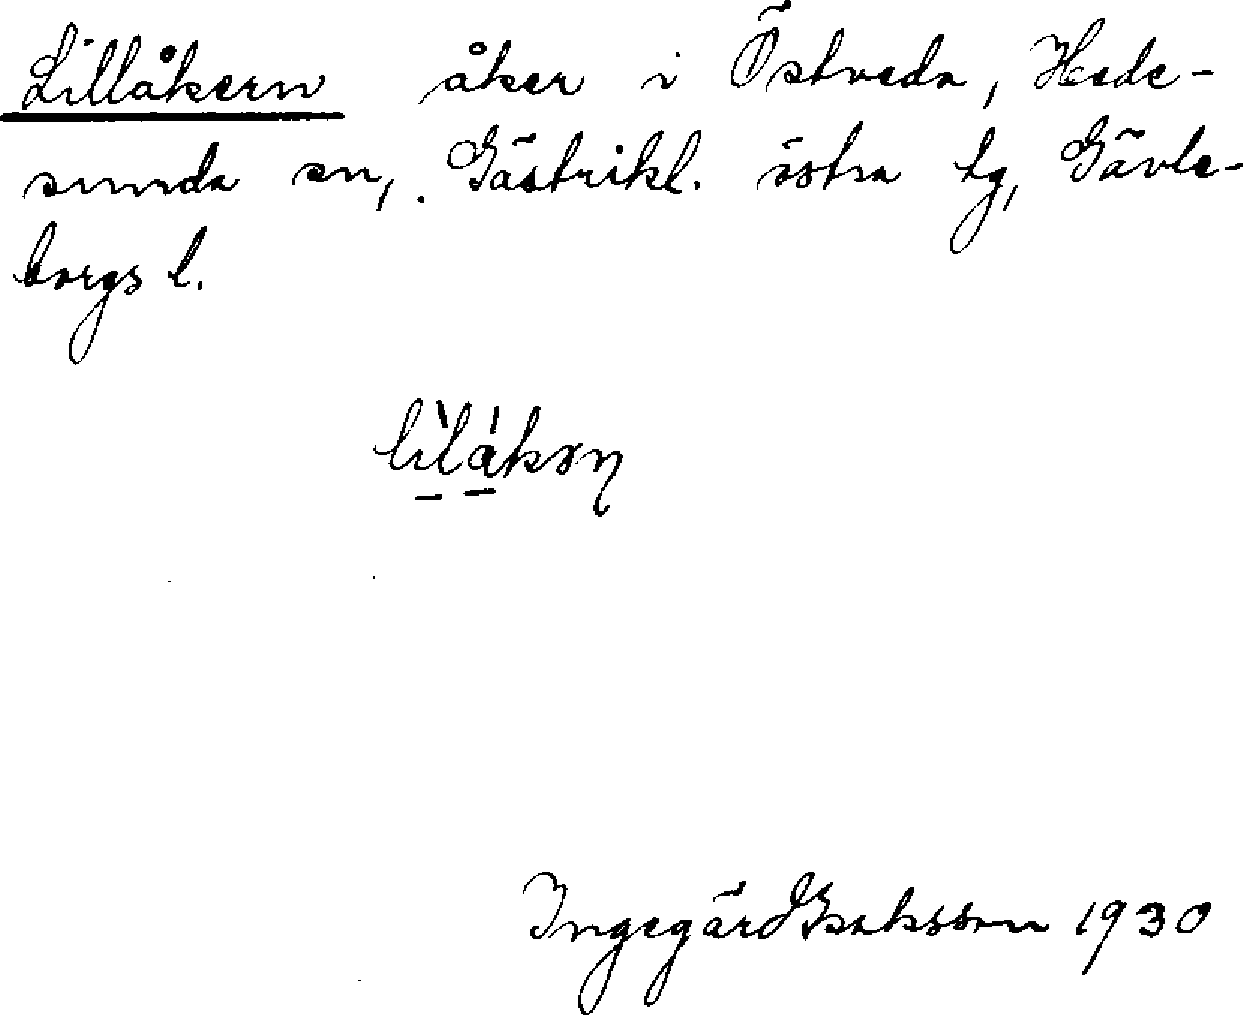 Lillåkern åker i Östveda, Hede-
sunda sn, Gästrikl. östra tg, Gävle-
borgs l.
Ingegärd Isaksson 1930